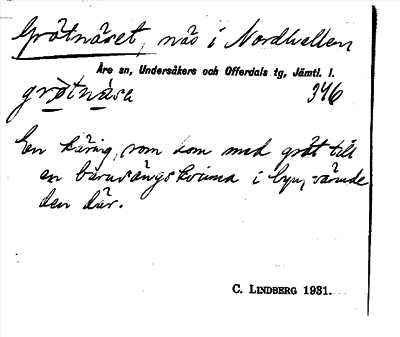 Grötnäset, näs i Nordhallen
Åre sn, Undersåkers och Offerdals tg, Jämtl. l.
grötnása 346
En käring, som kom med gröt till
en barnsängskvinna i byn, värmde
den där.
C. LINDBERG 1931.